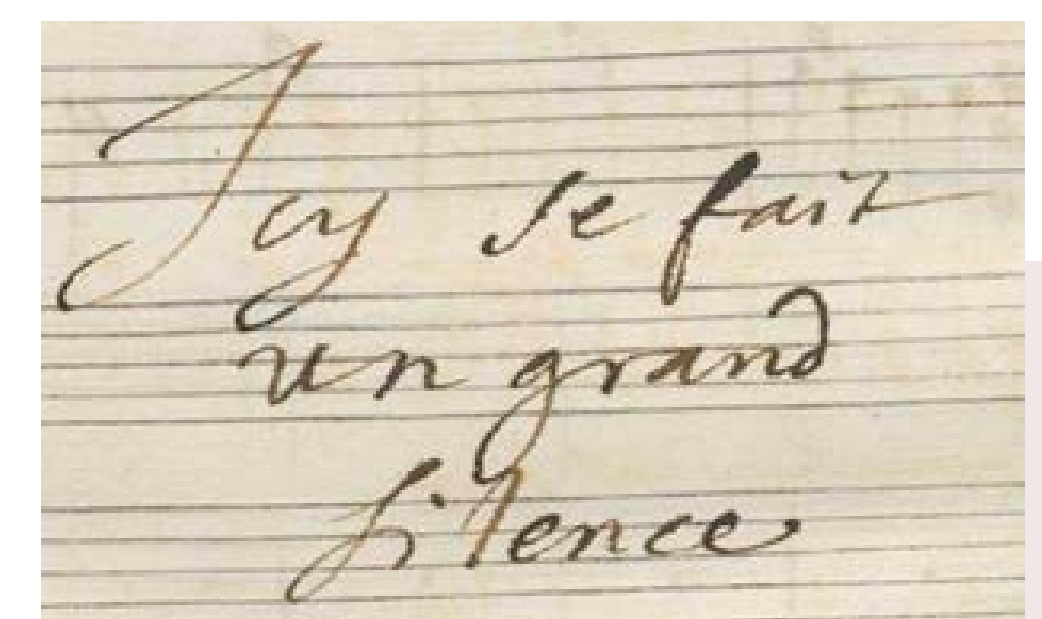 Icy se fait
un grand
silence